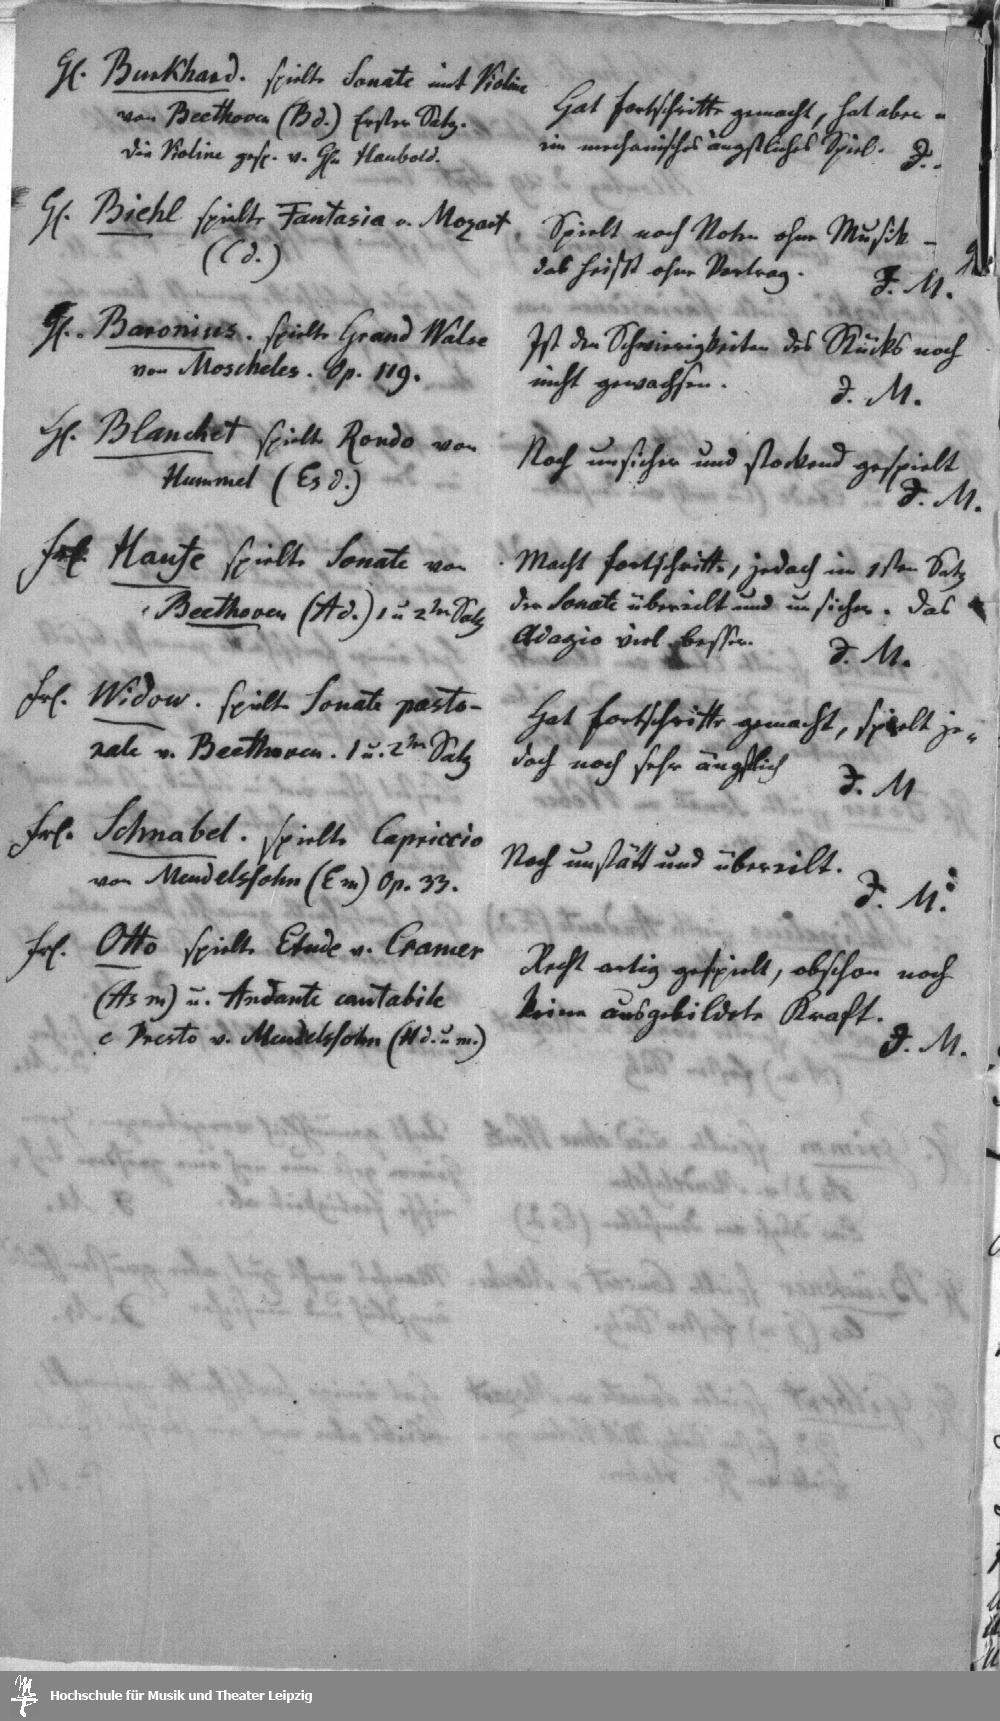 H. Burkhard. spielte Sonate mit Violine
von Beethoven (Bd.) Erster Satz.
Die Violine gesp. v. Hrn Haubold.
Hat Fortschritte gemacht, hat aber
ein mechanisches ängstliches Spiel.
H. Biehl spielte Fantasia v. Mozart
(Cd.)
Spielt nach Noten ohne Musik –
das heißt ohne Vortrag.
J. M.
H. Baronius. spielte Grand Walse
von Moscheles. Op. 119.
Ist den Schwierigkeiten des Stücks noch
nicht gewachsen.
J. M.
H. Blanchet spielte Rondo von
Hummel (Es d.)
Noch unsicher und stockend gespielt
J. M.
Frl. Haufe spielte Sonate von
Beethoven (Ad.) 1 u 2ter Satz
Macht Fortschritte, jedoch im 1sten Satz
der Sonate übereilt und unsicher. Das
Adagio viel besser.
J. M.
Frl. Widow. spielte Sonate pasto-
rale v. Beethoven. 1 u. 2ter Satz
Hat Fortschritte gemacht, spielt je-
doch noch sehr ängstlich
J. M
Frl. Schnabel. spielte Capriccio
von Mendelssohn (Em) Op. 33.
Noch unstätt und übereilt.
J. M.
Frl. Otto spielte Etude v. Cramer
(As m) u. Andante cantabile
e Presto v. Mendelssohn (H d. u m.)
Recht artig gespielt, obschon noch
keine ausgebildete Kraft.
J. M.
Hochschule für Musik und Theater Leipzig